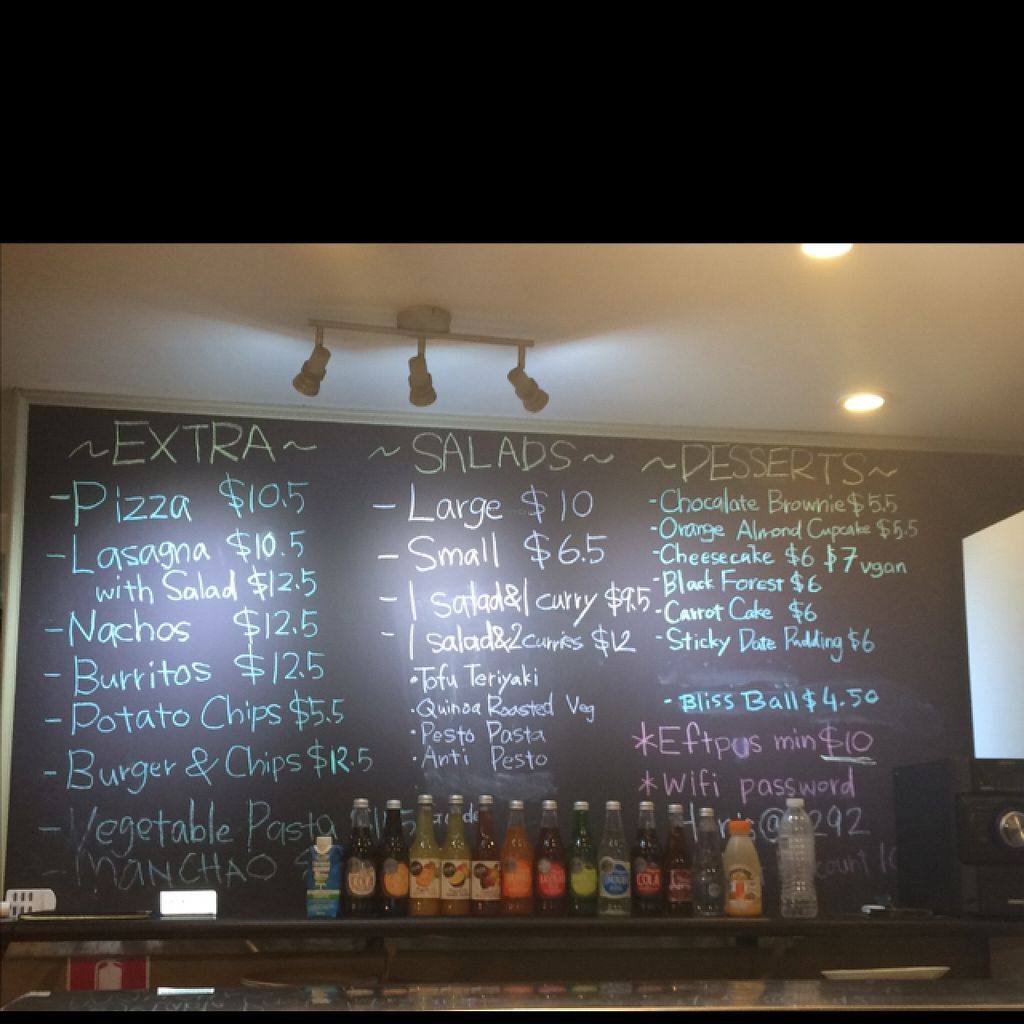 ~EXTRA~
-Pizza $10.5
-Lasagna $10.5
with Salad $12.5
-Nachos $12.5
-Burritos $12.5
-Potato Chips $5.5
-Burger & Chips $12.5
-Vegetable Pasta
MANCHAO
~SALADS~
-Large $10
-Small $6.5
-1 salad&1 curry $9.5
-1 salad&2 curries $12
•Tofu Teriyaki
•Quinoa Roasted Veg
•Pesto Pasta
•Anti Pesto
~DESSERTS~
-Chocolate Brownie $5.5
-Orange Almond Cupcake $5.5
-Cheesecake $6 $7 vgan
-Black Forest $6
-Carrot Cake $6
-Sticky Date Pudding $6
-Bliss Ball $4.50
*Eftpos min $10
*Wifi password
COLA